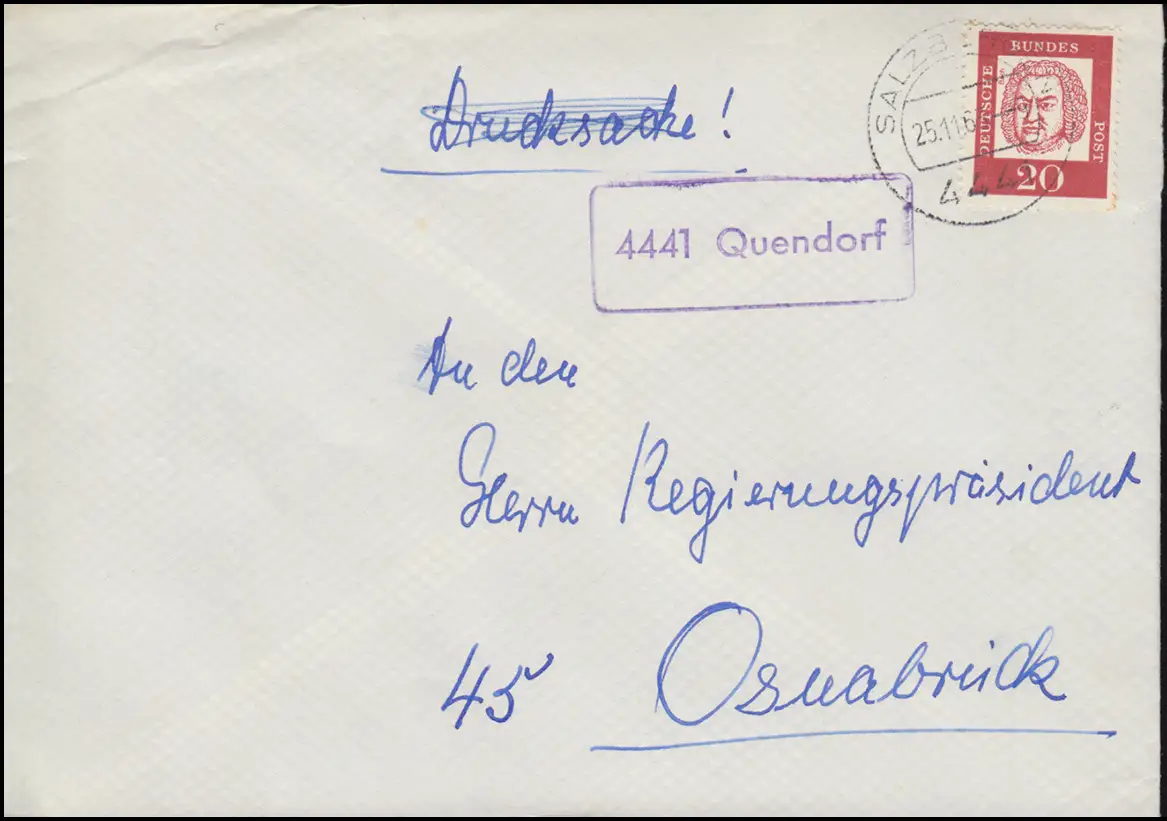 Drucksache!
BUNDES
DEUTSCHE
POST
20
25.11.6
444
4441 Quendorf
An den
Herrn Regierungspräsident
45 Osnabrück